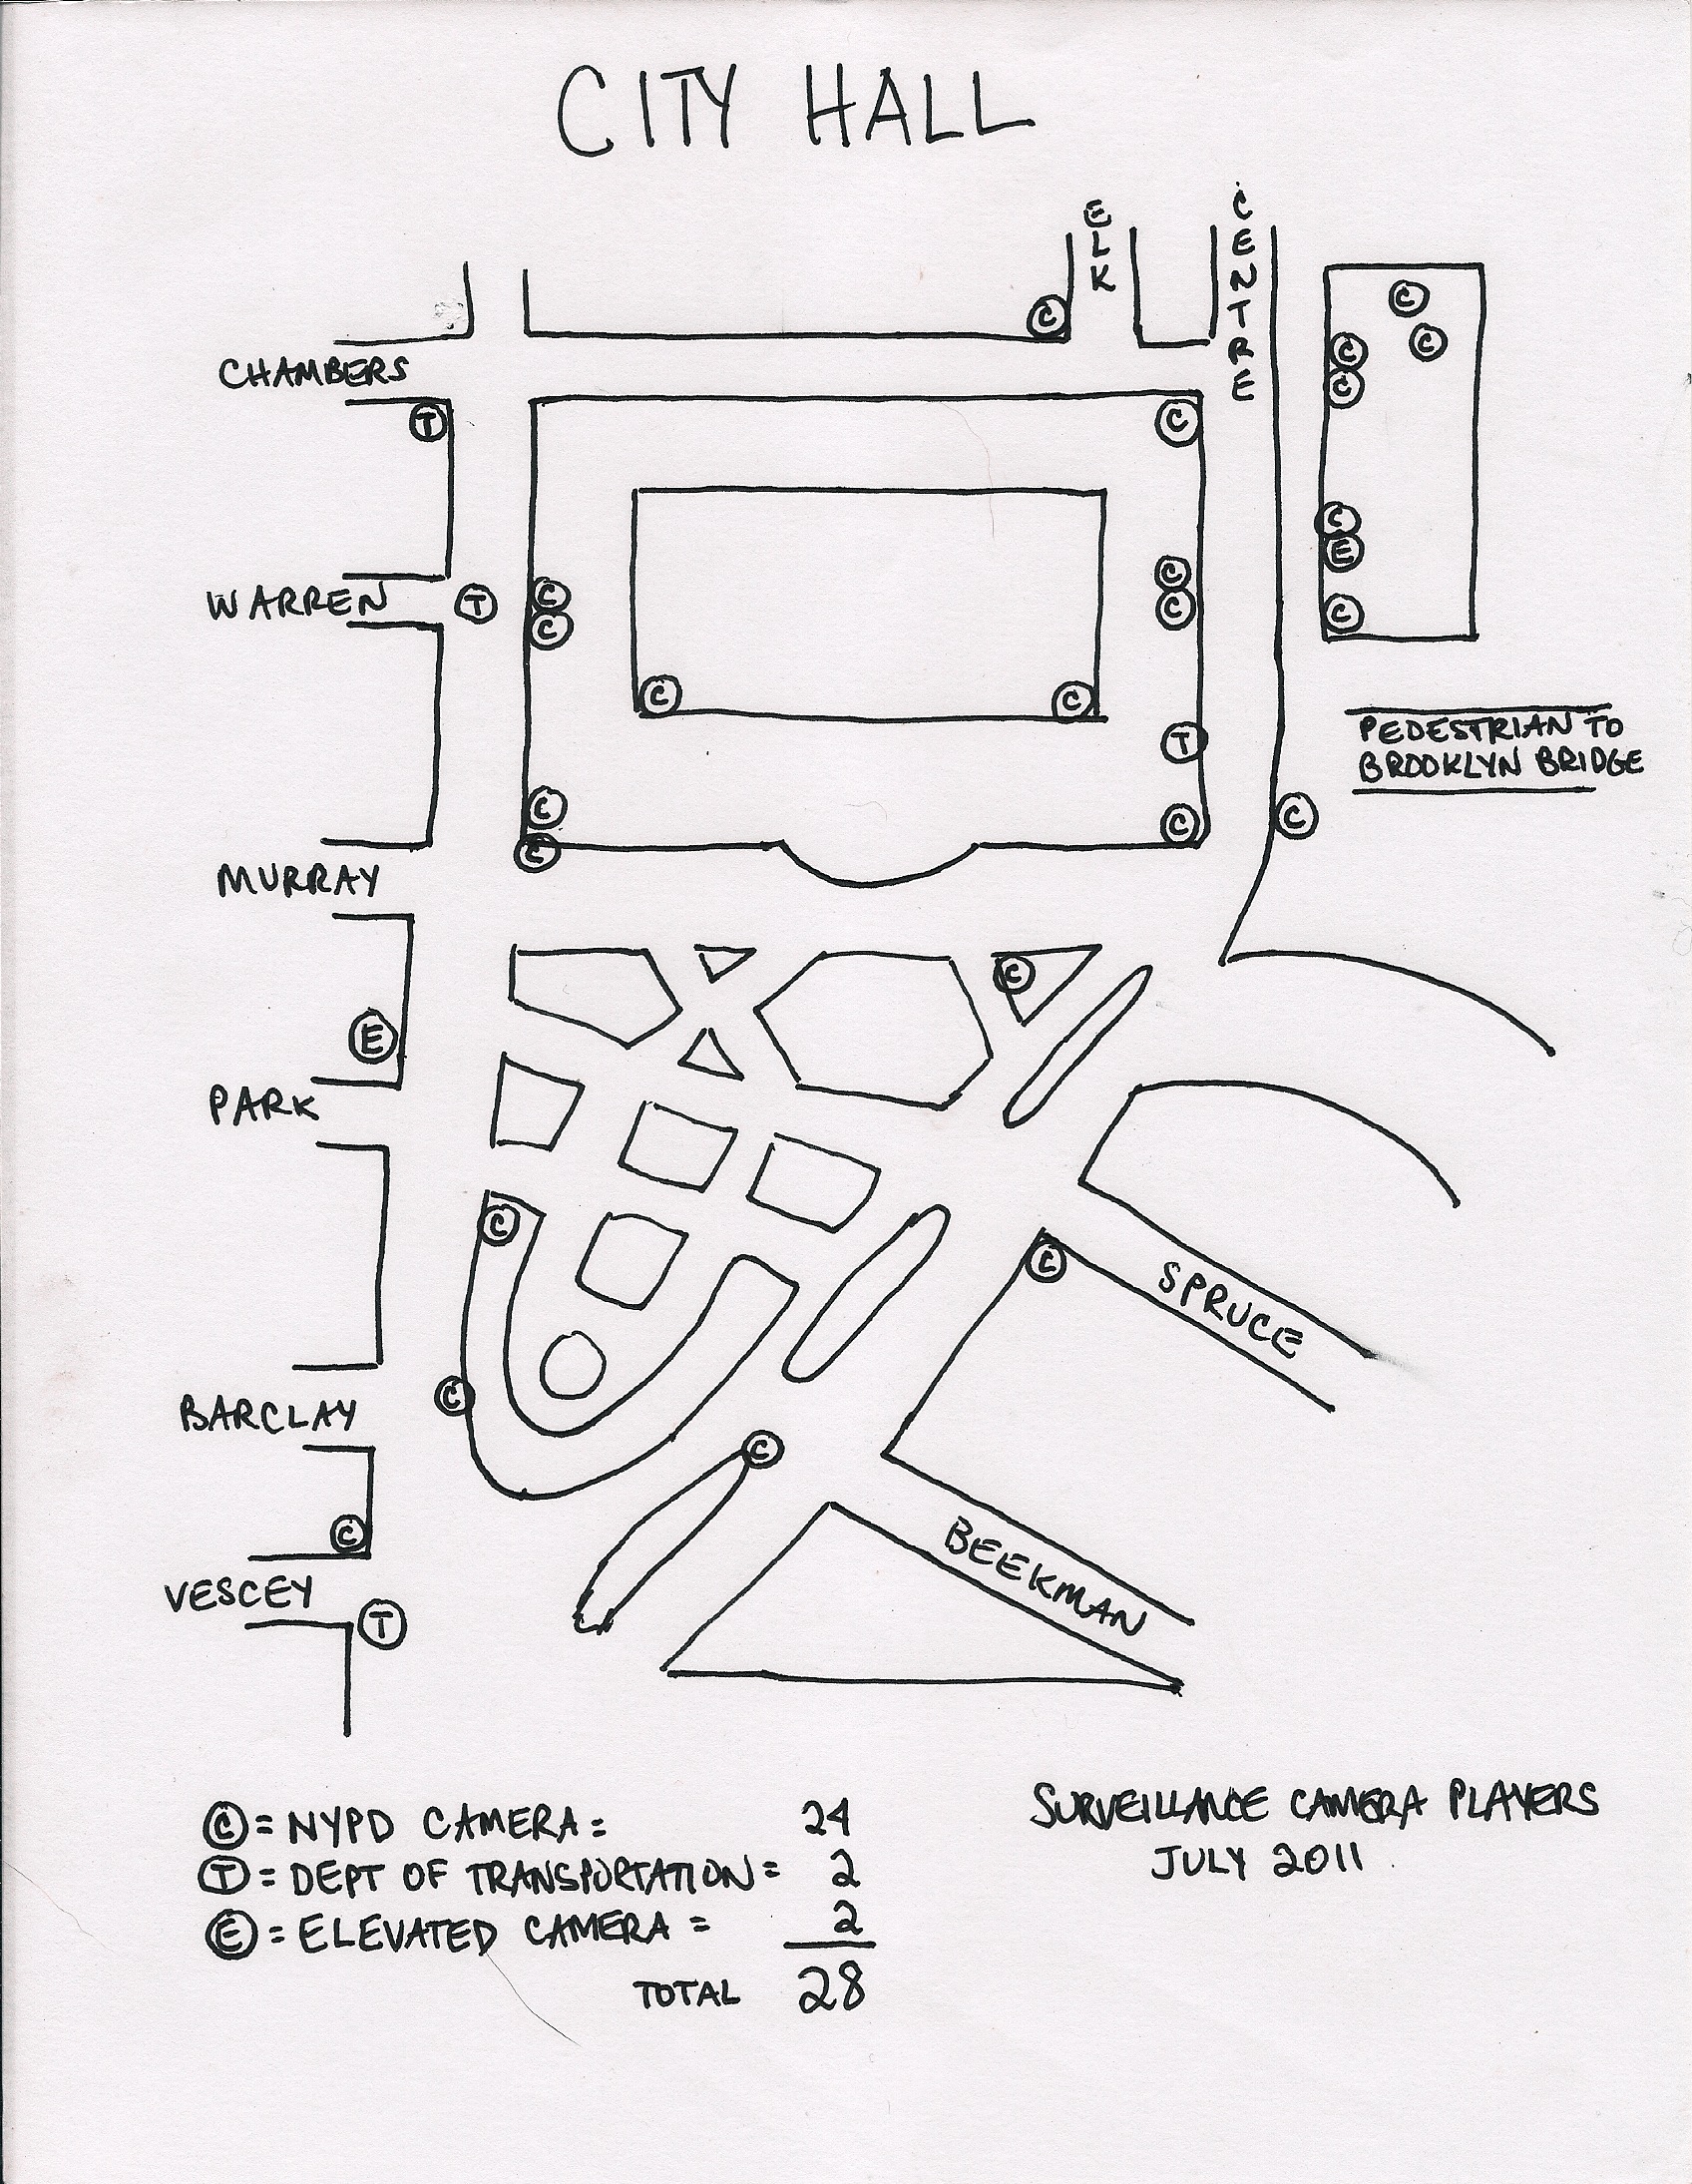 CITY HALL
ELK
CENTRE
C
C
C
C
C
CHAMBERS
T
C
C
E
C
C
WARREN
T
C
C
C
C
C
C
T
PEDESTRIAN TO
BROOKLYN BRIDGE
C
C
C
C
MURRAY
C
E
PARK
C
C
SPRUCE
C
BARCLAY
C
C
BEEKMAN
VESCEY
T
C = NYPD CAMERA = 24
T = DEPT OF TRANSPORTATION = 2
E = ELEVATED CAMERA = 2
TOTAL 28
SURVEILLANCE CAMERA PLAYERS
JULY 2011